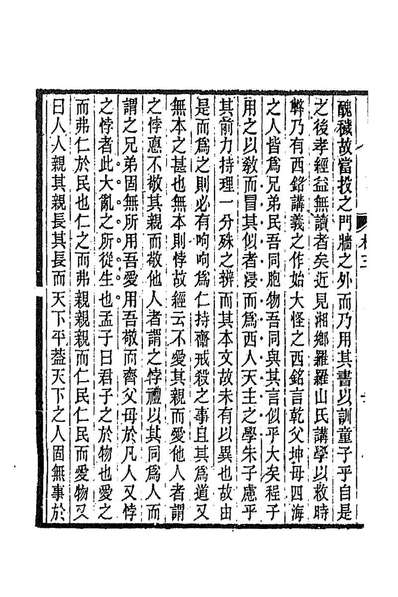 醜穢故當投之門牆之外而乃用其書以訓童子乎自是
之後孝經益無讀者矣近見湘鄉羅羅山氏講學以救時
弊乃有西銘講義之作始大怪之西銘言乾父坤母四海
之人皆為兄弟民吾同胞物吾同與其言似乎大矣程子
用之以敎而冒其似者浸而為西人天主之學朱子慮乎
其前力持理一分殊之辨而其本文故未有以異也故由
是而為之則必有呴呴為仁持齋戒殺之事且其為道又
無本之甚也無本則悖故經云不愛其親而愛他人者謂
之悖悳不敬其親而敬他人者謂之悖禮以其同為人而
謂之兄弟固無所用吾愛用吾敬而齊父母於凡人又悖
之悖者此大亂之所從生也孟子曰君子之於物也愛之
而弗仁於民也仁之而弗親親親而仁民仁民而愛物又
曰人人親其親長其長而天下平葢天下之人固無事於